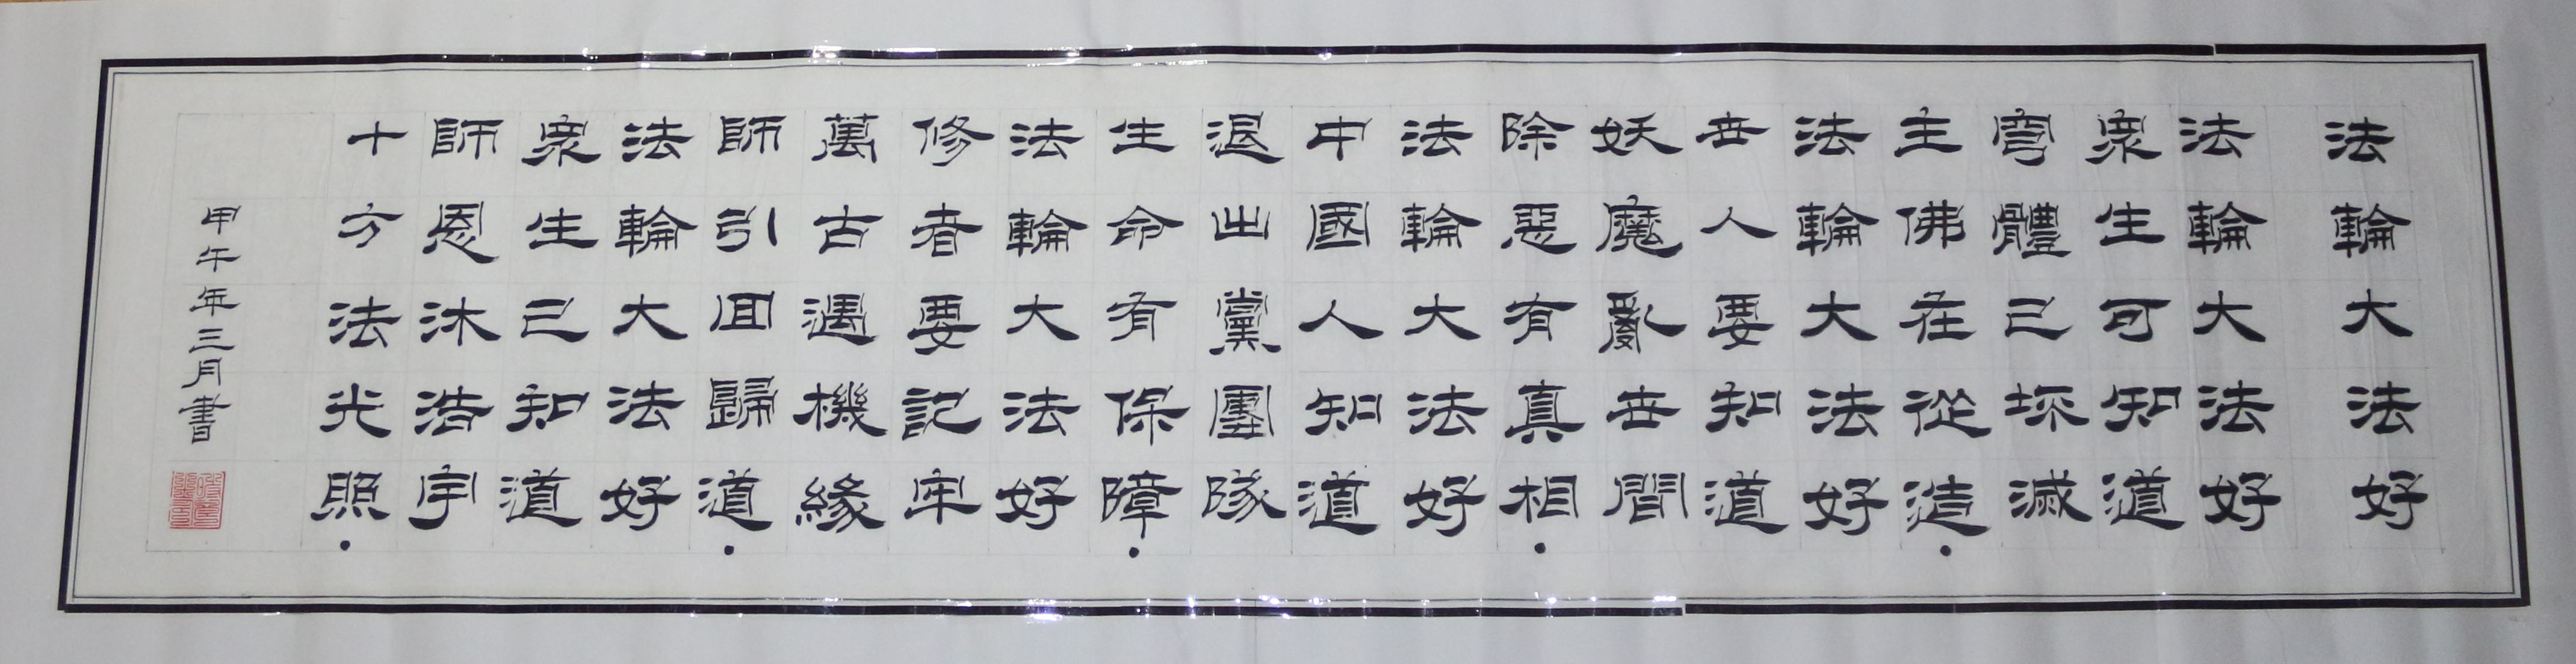 法輪大法好
法輪大法好
衆生可知道
穹體已壞滅
主佛在從造
法輪大法好
世人要知道
妖魔亂世間
除惡有真相
法輪大法好
中國人知道
退出黨團隊
生命有保障
法輪大法好
修者要記牢
萬古遇機緣
師引回歸道
法輪大法好
衆生已知道
師恩沐浩宇
十方法光照
甲午年三月書